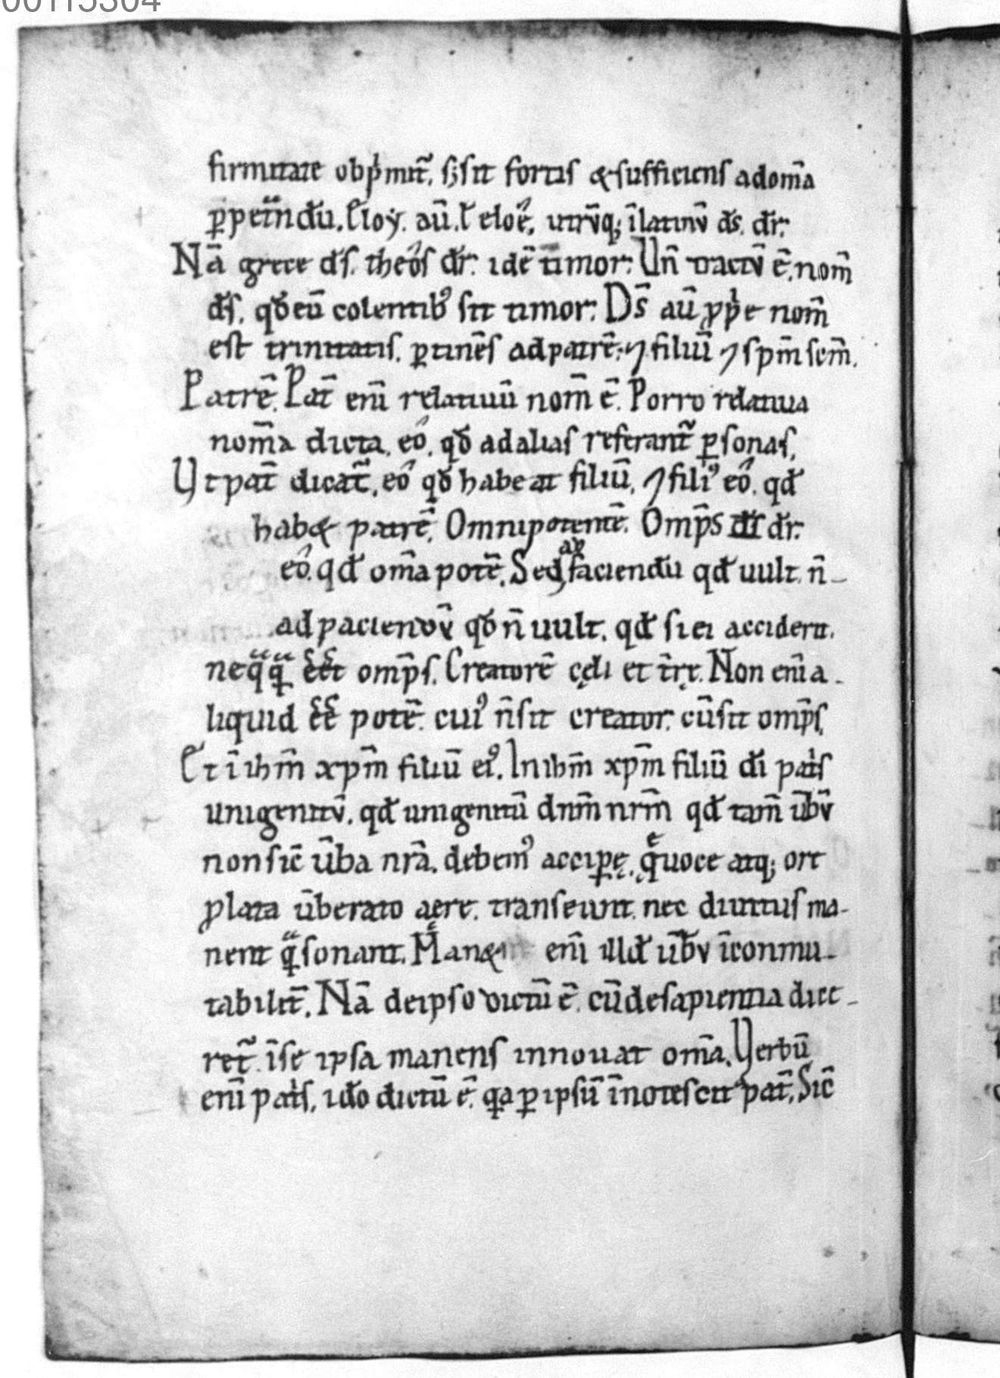 00115304
firmitate obp̍mit᷑, sꝫ sit fortis &sufficiens ad om̄a
ꝑpet᷑nđu. Eloy. aū. ł eloē, utrūq; īlatinū ds̄. dr̄:
Nā grece ds̄. theos dr̄. idē timor: Un̄ tractū ē. nom̄
ds̄, qđ eū colentibꝰ sit timor: Ds̄ aū ꝓp̍e nom̄
est trinitatis. ꝑtinēs ad patrē. ⁊ filiū ⁊ sp̄m scm̄.
Patrē. Pat̄ eni̅ relatiuū nom̄ ē. Porro relatiua
nom̄a dicta, eo, qđ ad alias referant᷑ ꝑsonas,
Ut pat̄ dicat᷑, eo qđ habeat filiū, ⁊ filiꝰ eo, qđ
hab& patrē. Omnipotentē. Omp̄s dr̄:
eo, qđ om̄a potē. Sed faciendū qđ uult. n̄
ad paciendū qđ n̄ uult. qđ si ei accideret.
neqᷓqᷓ eēt omp̄s. Creatorē cęli et t̄rę. Non eni̅ a-
liquid eē̄ potē. cuiꝰ n̄ sit creator. cū sit omp̄s.
Et ī ihm̄ xp̄m filiū eiꝰ. In ihm̄ xp̄m filiū di̅ pat̍s
unigenitū. qđ unigenitū dn̄m nr̄m qđ tam̄ ūbū
non sic̄ ūba nr̄a. debemꝰ acciꝑę. q̄ uoce atq; ore
ꝓlata ūberato aere. transeunt. nec diutius ma-
nent qᷓ sonant. Man& eni̅ illđ ūbū īconmu-
tabilit᷑. Nā de ipso dictū ē. cū de sapientia dice-
ret᷑. ī se ipsa manens innouat om̄a. Uerbū
eni̅ pat̍s. iđo dictū ē. qᷓa ꝑ ipsū īnotescit pat̄. Sic̄